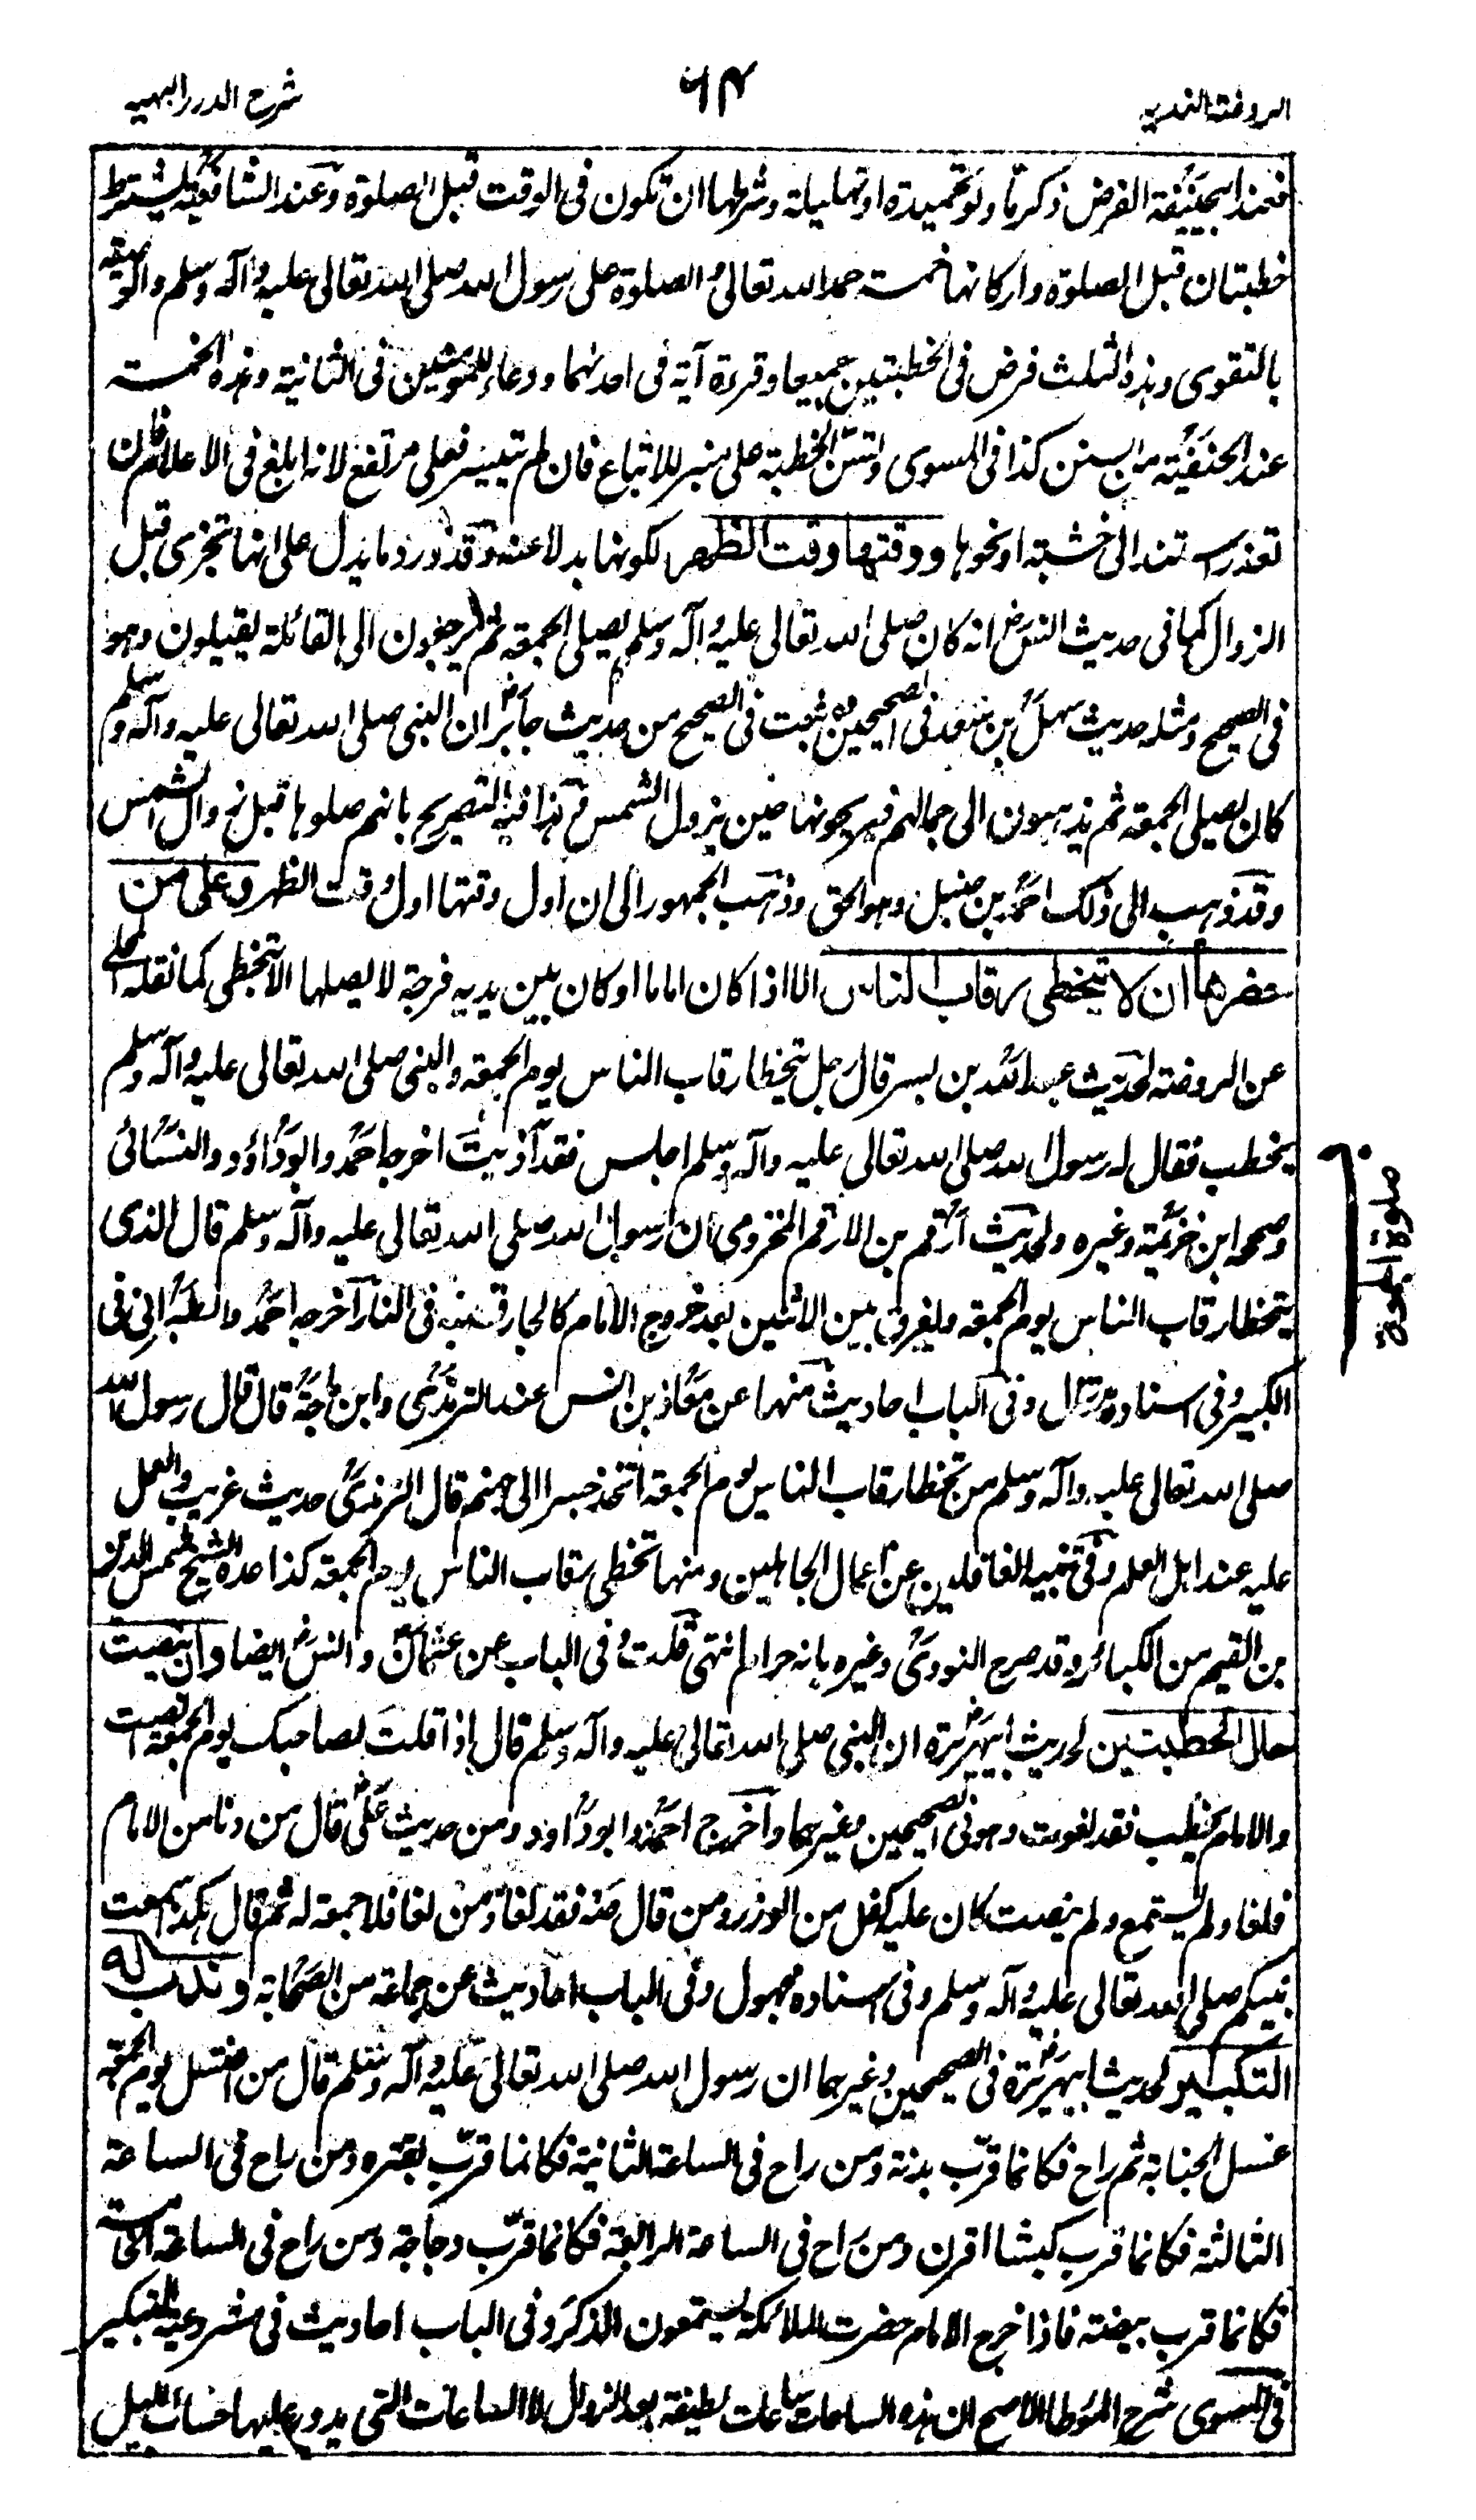 الروضة الندية
٦٤
شرح الدرر البهية
فعند ابیحنیفة الفرض ذكر ما ولو تحميدة او تهليلة وشرطها ان تكون فی الوقت قبل الصلوة وعند الشافعية يشترط
خطبتان قبل الصلوة واركانها خمسة حمد الله تعالی و الصلوة علی رسول الله صلی الله تعالی عليه وآله وسلم والوصية
بالتقوی وهذه الثلث فرض فی الخطبتين جميعا وقرءة آية فی احدٰهما ودعاء للمؤمنين فی الثانية وهذه الخمسة
عند الحنفية من السنن كذا فی المسوی وتسنّ الخطبة علی منبر للاتباع فان لم تيسّر فعلی مرتفع لانه ابلغ فی الاعلام فان
تعذر استند الی خشبة او نحوها ووقتها وقت الظهر لكونها بدلا عنه وقد ورد ما يدل علی انها تجزی قبل
الزوال كما فی حديث انس انه كان صلی الله تعالی عليه وآله وسلم يصلی الجمعة ثم يرجعون الی القائلة يقيلون وهو
فی الصحيح ومثله حديث سهل بن سعد فی الصحيحين وثبت فی الصحيح من حديث جابر ان النبی صلی الله تعالی عليه وآله وسلم
كان يصلی الجمعة ثم يذهبون الی جمالهم فيريحونها حين يزول الشمس وهذا فيه التصريح بانهم صلوها قبل زوال الشمس
وقد ذهب الی ذلك احمد بن حنبل وهو الحق وذهب الجمهور الی ان اول وقتها اول وقت الظهر وعلی من
حضرها ان لا يتخطی رقاب الناس الا اذا كان اماما او كان بين يديه فرجة لا يصلها الا بتخطی كما نقله المحلی
عن الروضة لحديث عبد الله بن بسر قال رجل يتخطا رقاب الناس يوم الجمعة والنبی صلی الله تعالی عليه وآله وسلم
يخطب فقال له رسول الله صلی الله تعالی عليه وآله وسلم اجلس فقد آذيت اخرجه احمد وابو داؤد والنسائی
وصححه ابن خزيمة وغيره ولحديث ارقم بن الارقم المخزومی ان رسول الله صلی الله تعالی عليه وآله وسلم قال الذی
يتخطا رقاب الناس يوم الجمعة ويفرق بين الاثنين بعد خروج الامام كالجار قصبه فی النار آخرجه احمد والطبرانی فی
الكبير وفی اسناده مقال وفی الباب احاديث منها عن معاذ بن انس عند الترمذی وابن ماجة قال قال رسول الله
صلی الله تعالی عليه وآله وسلم من تخطا رقاب الناس يوم الجمعة اتخذ جسرا الی جهنم قال الترمذی حديث غريب والعمل
عليه عند اهل العلم وفی تنبيه الغافلين عن اعمال الجاهلين ومنها تخطی رقاب الناس يوم الجمعة كذا عده الشيخ شمس الدين
بن القيم من الكبائر وقد صرح النووی وغيره بانه حرام انتهی قلت وفی الباب عن عثمان وانس ايضا وان ينصت
حال الخطبتين لحديث ابيهريرة ان النبی صلی الله تعالی عليه وآله وسلم قال اذا قلت لصاحبك يوم الجمعة انصت
والامام يخطب فقد لغوت وهو فی الصحيحين وغيرهما واخرج احمد وابو داود من حديث علی قال من دنا من الامام
فلغا ولم يستمع ولم ينصت كان عليه كفل من الوزر ومن قال صه فقد لغا ومن لغا فلا جمعة له ثم قال هكذا سمعت
نبيكم صلی الله تعالی عليه وآله وسلم وفی اسناده مجهول وفی الباب احاديث عن جماعة من الصحابة وندب له
التبكير لحديث ابيهريرة فی الصحيحين وغيرهما ان رسول الله صلی الله تعالی عليه وآله وسلم قال من اغتسل يوم الجمعة
غسل الجنابة ثم راح فكانما قرّب بدنة ومن راح فی الساعة الثانية فكانما قرّب بقرة ومن راح فی الساعة
الثالثة فكانما قرب كبشا اقرن ومن راح فی الساعة الرابعة فكانما قرّب دجاجة ومن راح فی الساعة الخامسة
فكانما قرب بيضة فاذا خرج الامام حضرت الملائكة يستمعون الذكر وفی الباب احاديث فی مشروعية التبكير
فی المسوی شرح الموطا الاصح ان هذه الساعات ساعات لطيفة بعد الزوال لا الساعات التی يدور عليها حساب الليل
صلوة الجمعة